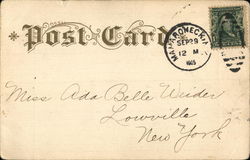 Post Card
MAMARONECK
SEP 29
12 M
1905
Miss Ada Belle Weider
Lowville
New York